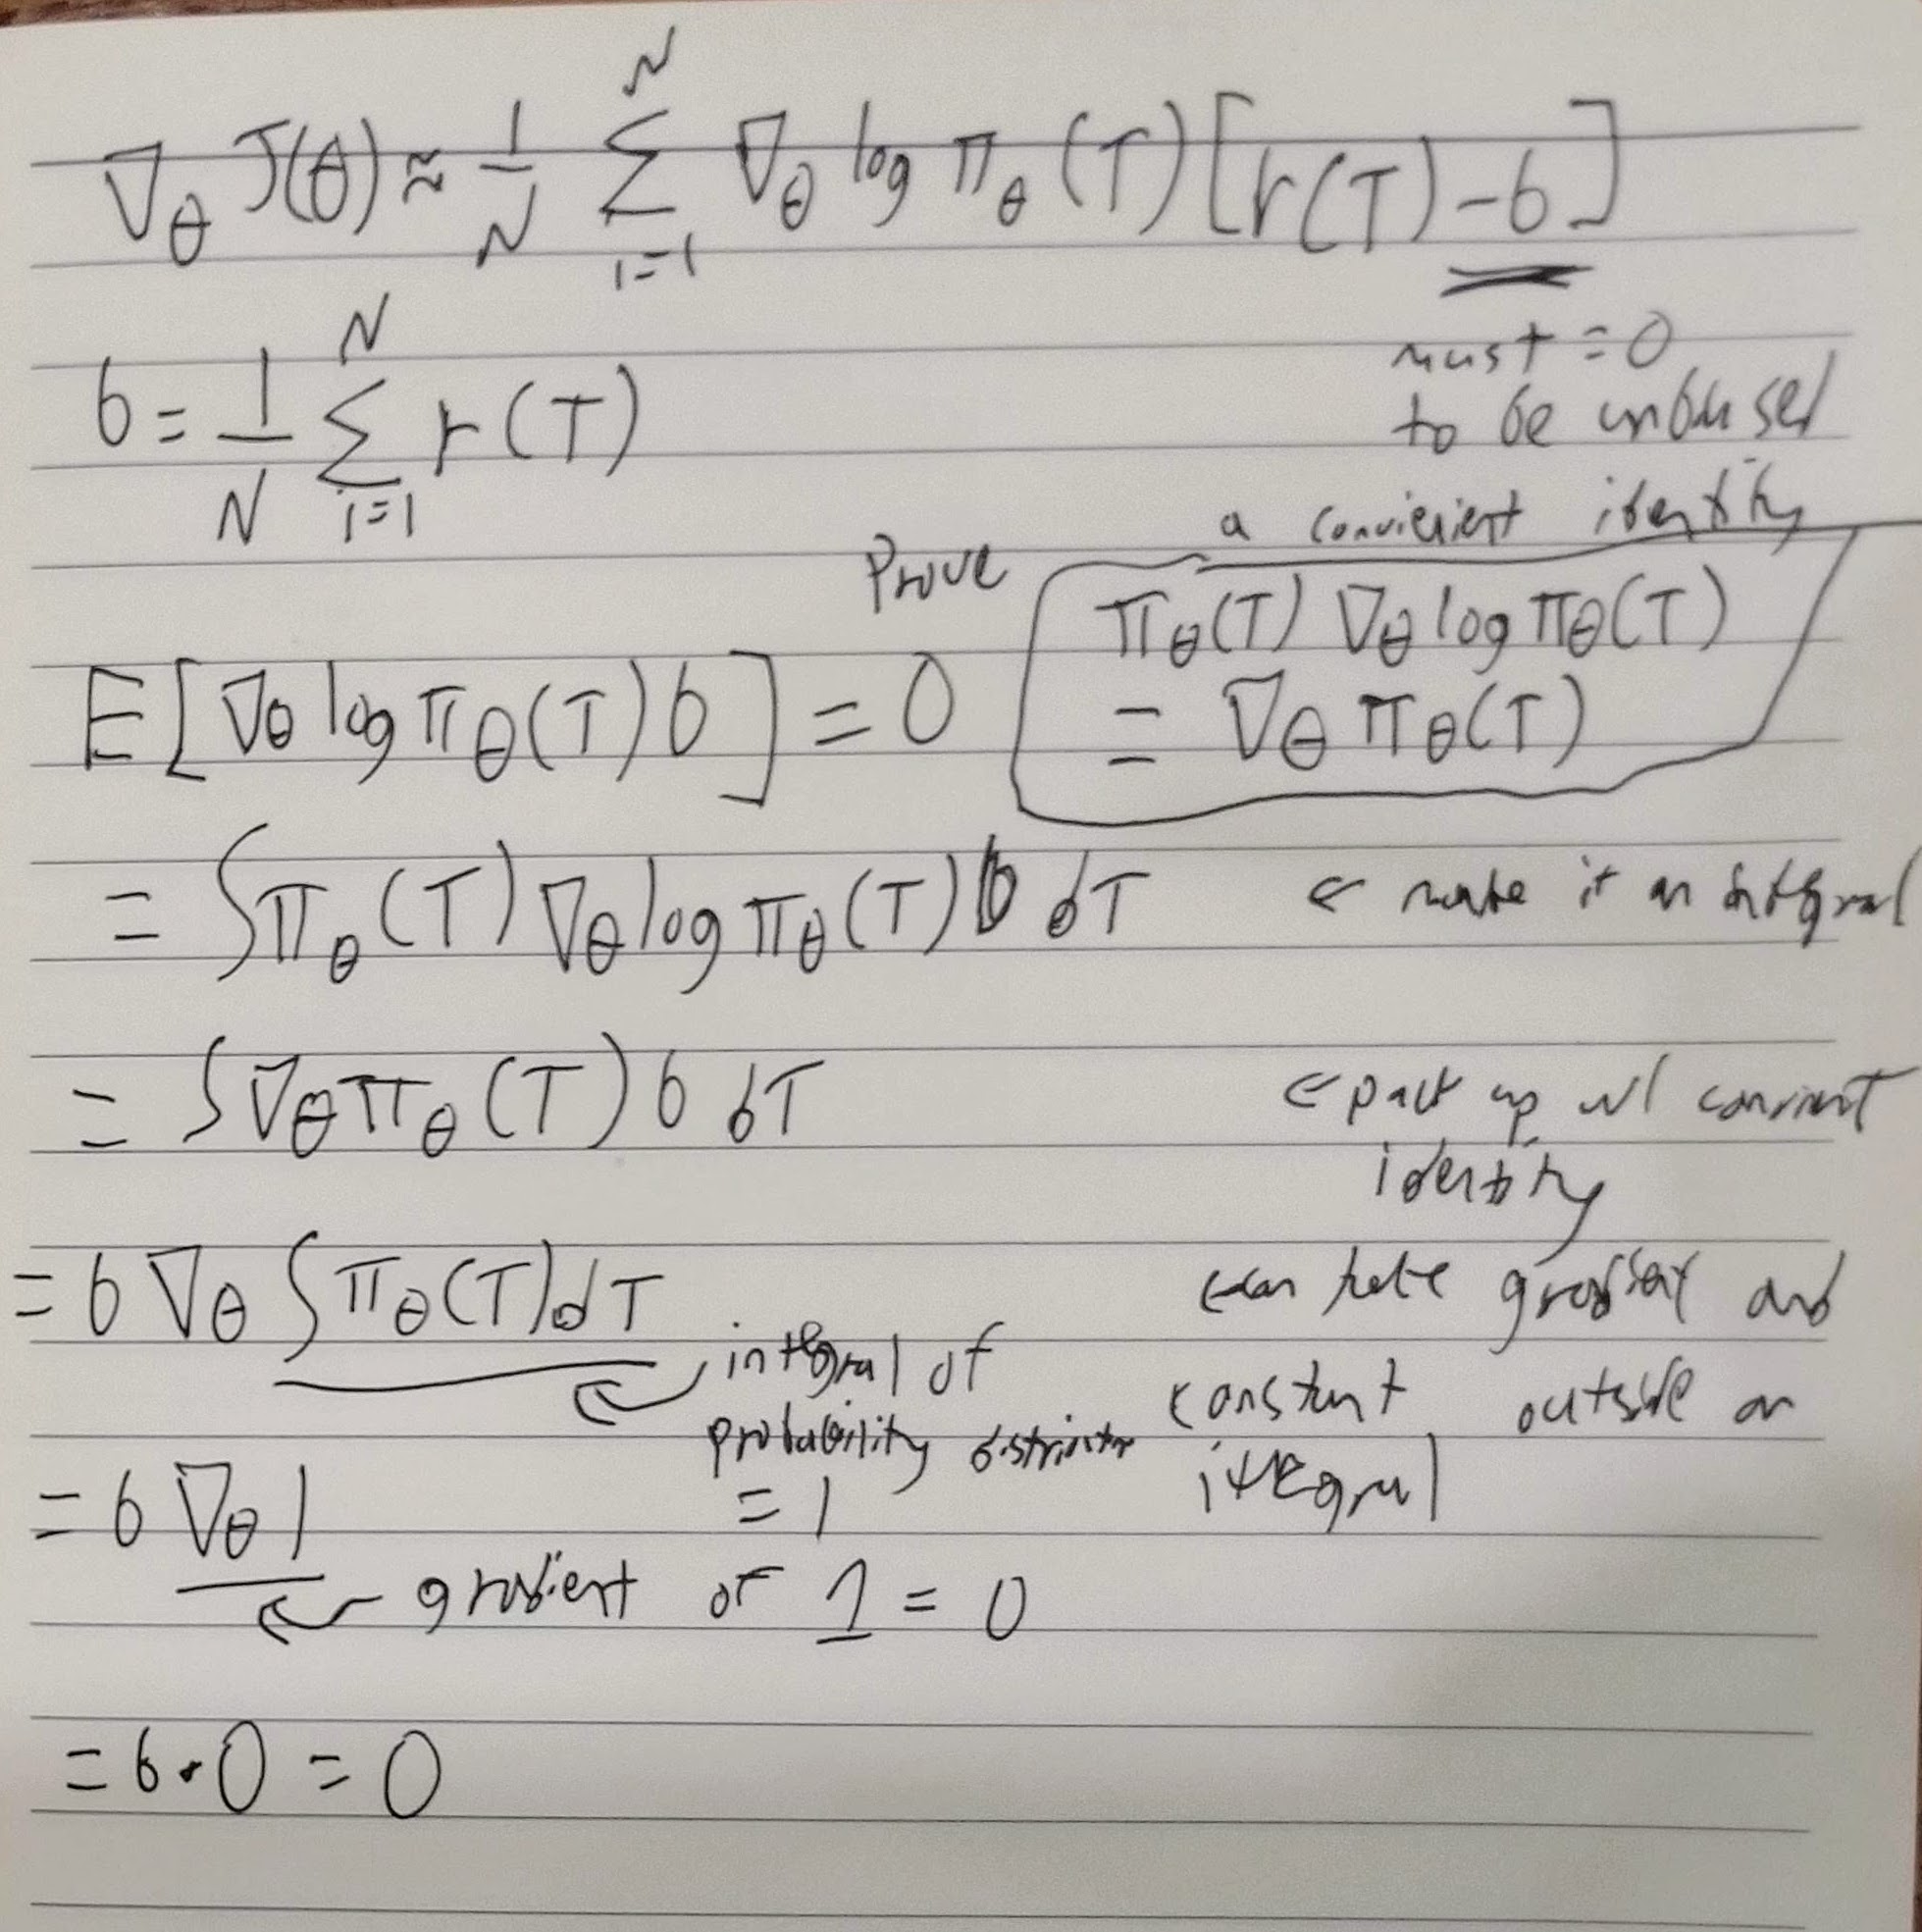 ∇θ J(θ) ≈ 1/N ∑_{i=1}^{N} ∇θ log πθ(T) [r(T) - b]
must = 0
to be unbiased
b = 1/N ∑_{i=1}^{N} r(T)
a convienient identity
Prove
πθ(T) ∇θ log πθ(T)
= ∇θ πθ(T)
E[∇θ log πθ(T) b] = 0
= ∫πθ(T) ∇θ log πθ(T) b dT ← make it an integral
= ∫∇θ πθ(T) b dT ← pack up w/ convient
identity
= b ∇θ ∫πθ(T)dT ← can take gradient and
constant outside an
integral
integral of
probability
= 1
= b ∇θ 1
gradient of 1 = 0
= b · 0 = 0